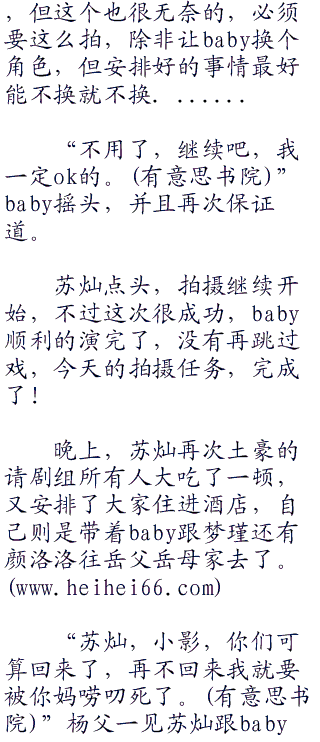 ，但这个也很无奈的，必须
要这么拍，除非让baby换个
角色，但安排好的事情最好
能不换就不换．......
“不用了，继续吧，我
一定ok的。(有意思书院)”
baby摇头，并且再次保证
道。
苏灿点头，拍摄继续开
始，不过这次很成功，baby
顺利的演完了，没有再跳过
戏，今天的拍摄任务，完成
了！
晚上，苏灿再次土豪的
请剧组所有人大吃了一顿，
又安排了大家住进酒店，自
己则是带着baby跟梦瑾还有
颜洛洛往岳父岳母家去了。
(www.heihei66.com)
“苏灿，小影，你们可
算回来了，再不回来我就要
被你妈唠叨死了。(有意思书
院)”杨父一见苏灿跟baby